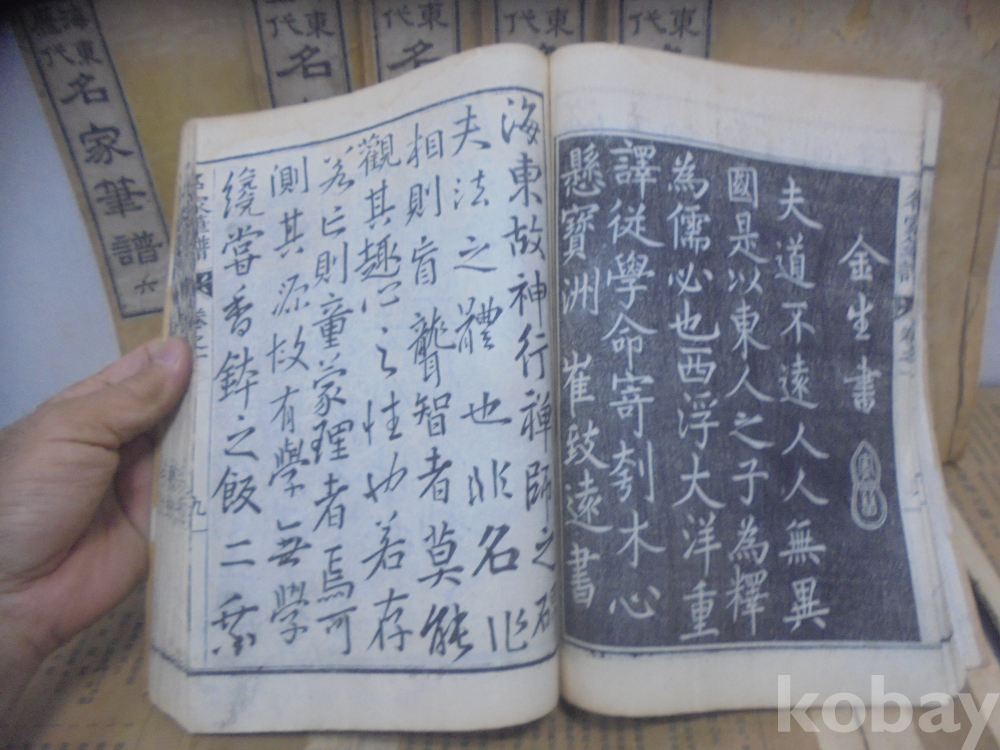 海東
歷代
名家筆譜
六
東
代
名
東
代
名
東
代
名
東
代
金生書
夫道不遠人人無異
國是以東人之子為釋
為儒必也西浮大洋重
譯從學命寄刳木心
懸寶洲 崔致遠書
海東故神行禪師之碑
夫法之體也非名非
相則盲聾智者莫能
觀其趣心之性也若存
若亡則童蒙理者焉可
測其源故有學無學
纔嘗香鉢之飯二乘
名家筆譜
卷之一
九
kobay